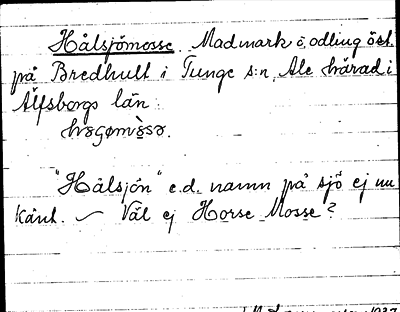 Hålsjömosse. Madmark o. odling öst.
på Bredhult i Tunge s:n, Ale härad i
Älfsborgs län.
hɔgømɵ̀sə.
"Hålsjön" e.d. namn på sjö ej nu
känt. ~ Väl ej Horse Mosse?